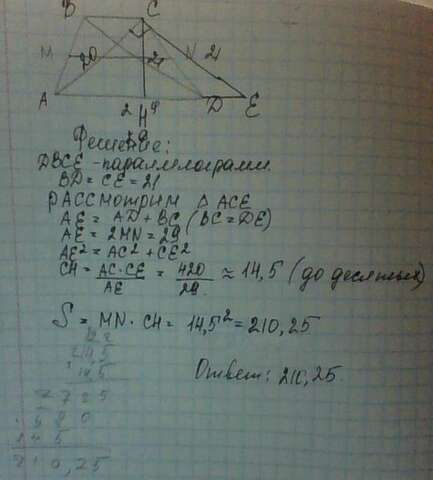 B C
M 20 21 N 21
A 2 H φ D E
29
Решение:
DBCE - параллелограмм.
BD = CE = 21
рассмотрим △ ACE
AE = AD + BC (BC = DE)
AE = 2MN = 29
AE² = AC² + CE²
CH = AC·CE / AE = 420 / 29 ≈ 14,5 (до десятых)
S = MN · CH = 14,5² = 210,25
14,5
14,5
725
580
145
210,25
Ответ: 210,25.